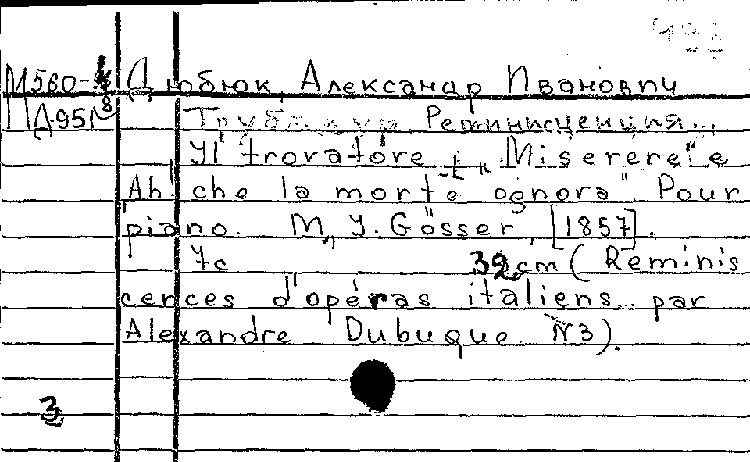 М560-4/8 Дюбюк, Александр Иванович
Д951 Трубадур Реминисценция.
Il trovatore "Miserere" e
Ah! che la morte ognora" Pour
piano. M., J. Gösser, [1857].
7с 32 cm (Reminis
cences d'opéras italiens par
Alexandre Dubuque N3).
3